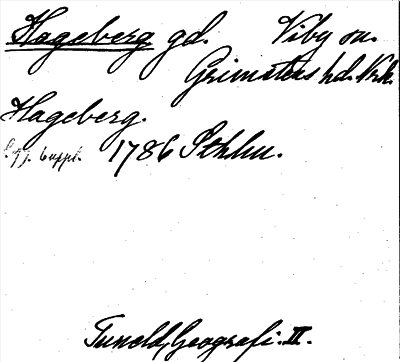 Hageberg gd. Viby sn.
Grimstens hd. Nrk.
Hageberg.
1786 Sthlm.
Tuneld, Geografi. II.